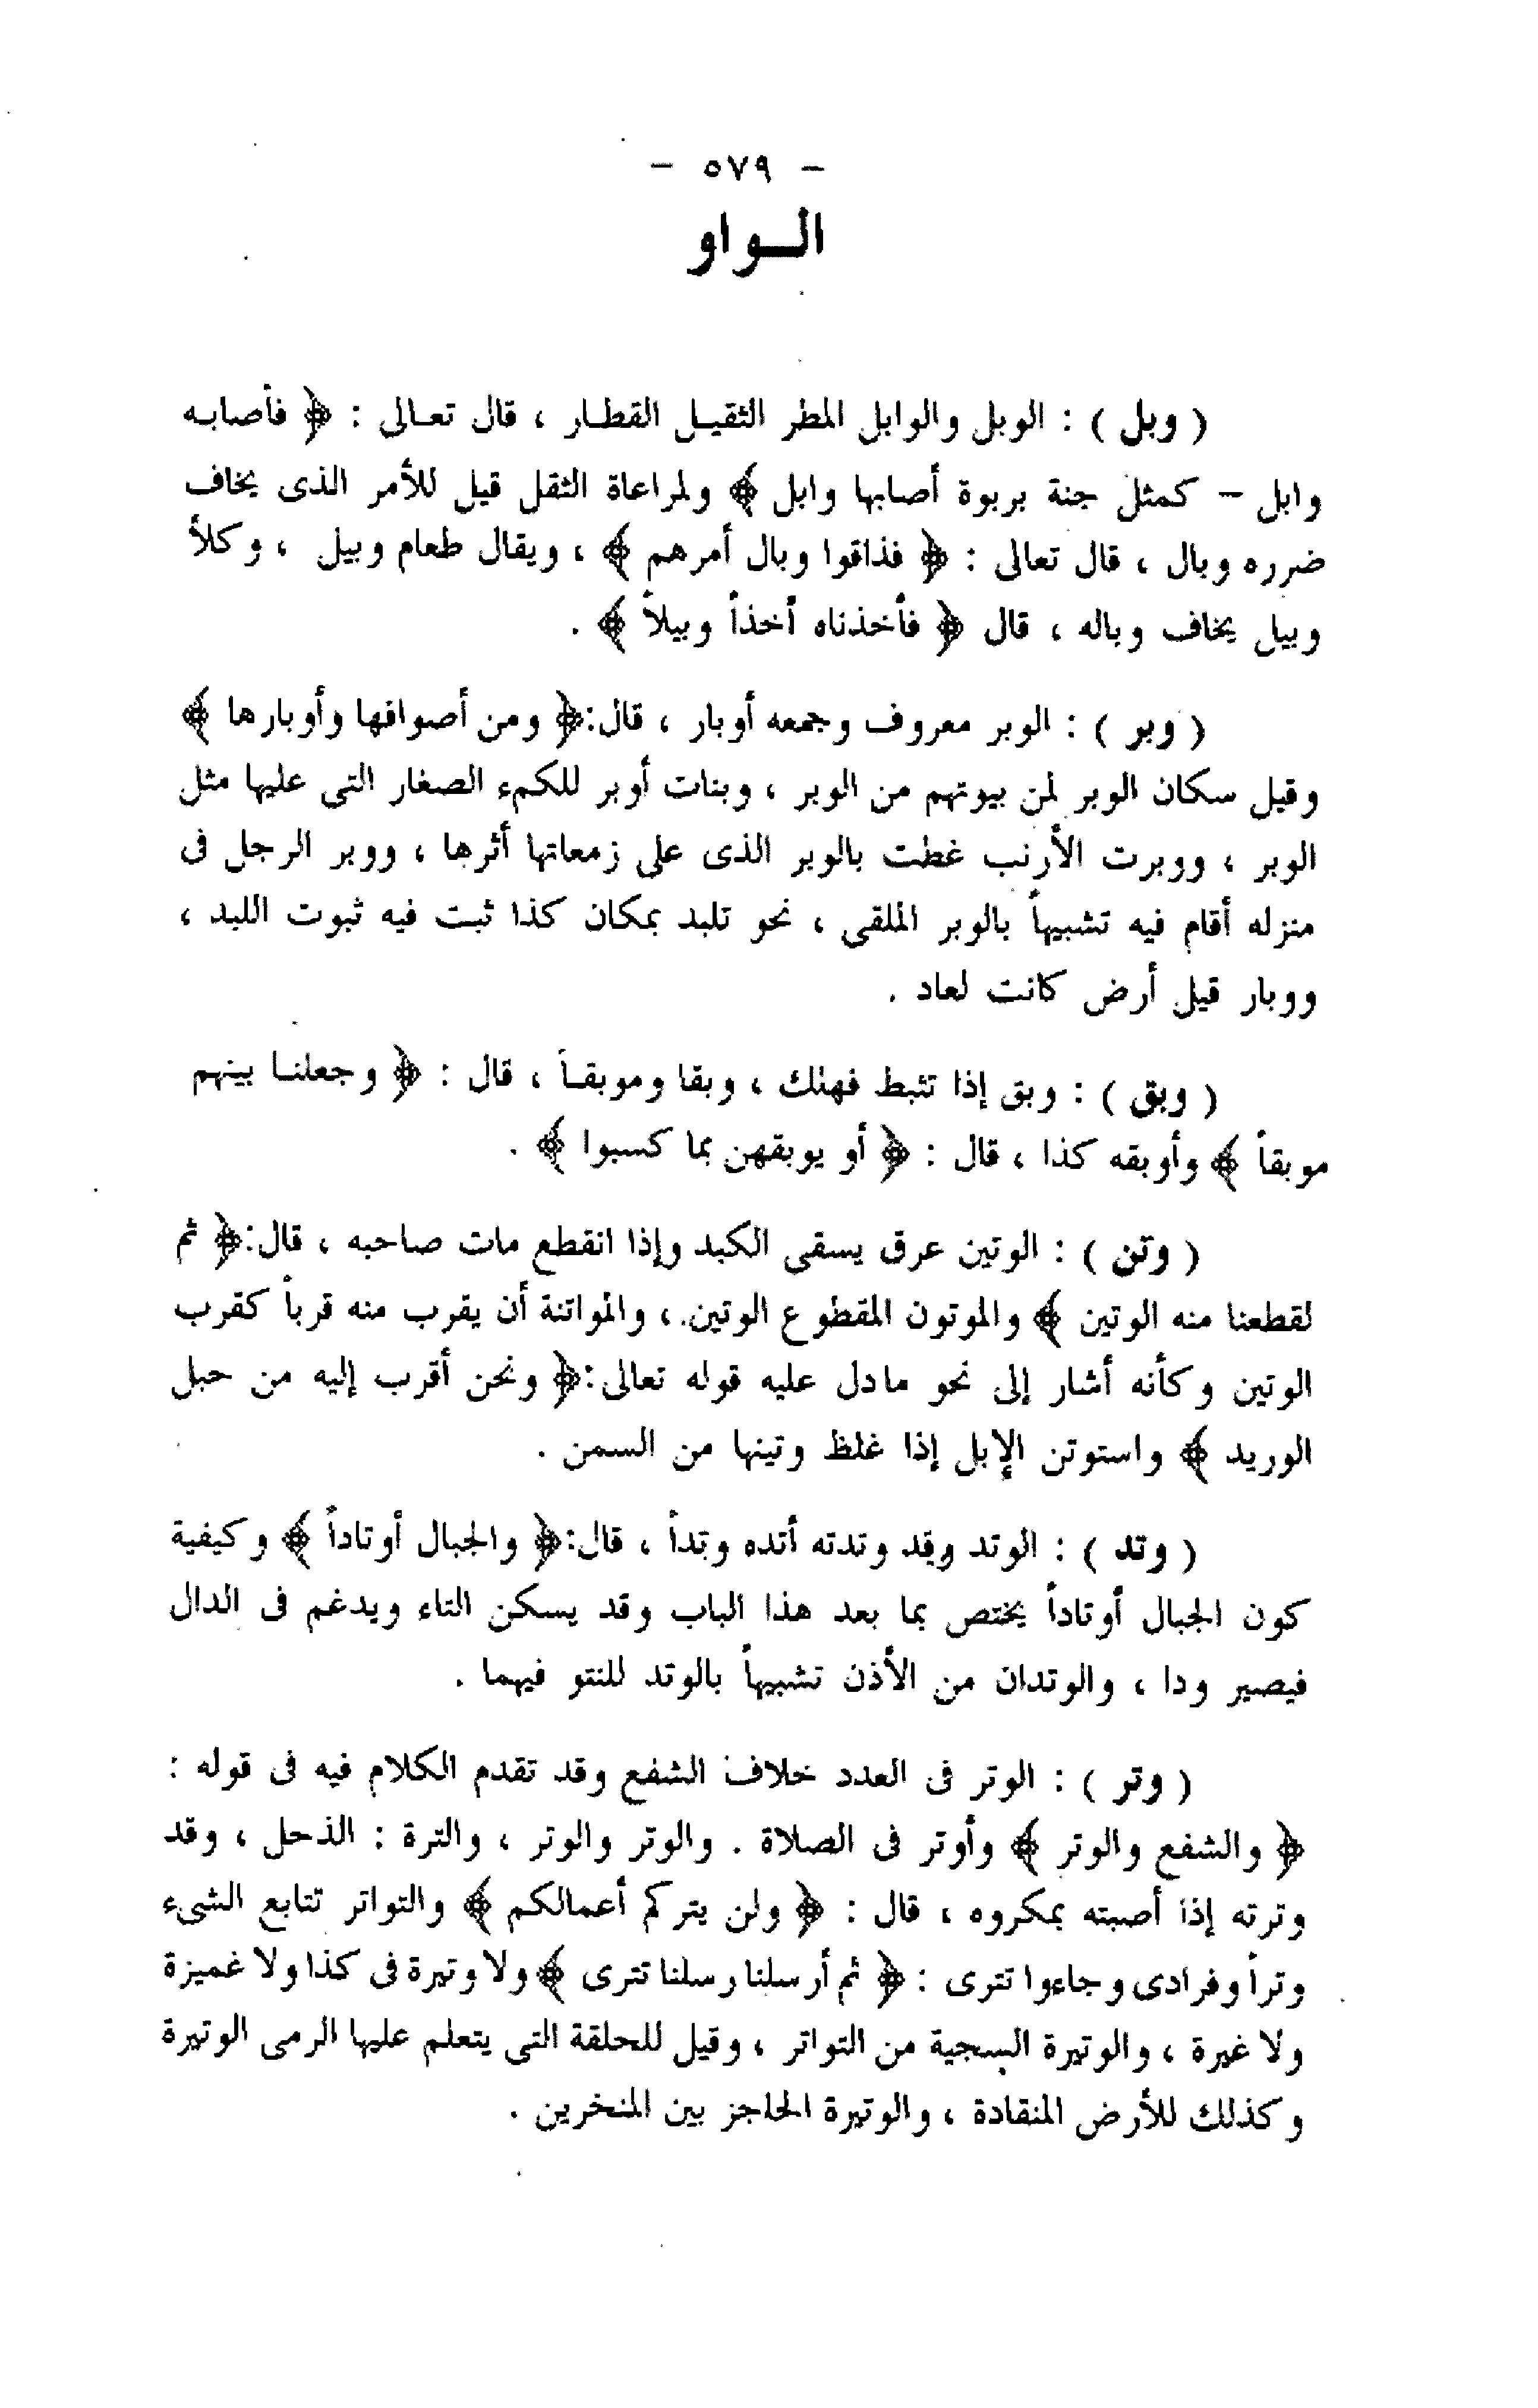 - ٥٧٩ -
الـواو
( وبل ) : الوبل والوابل المطر الثقيـل القطـار ، قال تعـالى : ﴿ فأصابـه
وابل - كمثل جنة بربوة أصابها وابل ﴾ ولمراعاة الثقل قيل للأمر الذى يخاف
ضرره وبال ، قال تعالى : ﴿ فذاقوا وبال أمرهم ﴾ ، ويقال طعام وبيل ، وكلأ
وبيل يخاف وباله ، قال ﴿ فأخذناه أخذاً وبيلاً ﴾ .
( وبر ) : الوبر معروف وجمعه أوبار ، قال:﴿ ومن أصوافها وأوبارها ﴾
وقيل سكان الوبر لمن بيوتهم من الوبر ، وبنات أوبر للكمء الصغار التى عليها مثل
الوبر ، ووبرت الأرنب غطت بالوبر الذى على زمعاتها أثرها ، ووبر الرجل فى
منزله أقام فيه تشبيهاً بالوبر الملقى ، نحو تلبد بمكان كذا ثبت فيه ثبوت اللبد ،
ووبار قيل أرض كانت لعاد .
( وبق ) : وبق إذا تثبط فهلك ، وبقا وموبقـاً ، قال : ﴿ وجعلنـا بينهم
موبقاً ﴾ وأوبقه كذا ، قال : ﴿ أو يوبقهن بما كسبوا ﴾ .
( وتن ) : الوتين عرق يسقى الكبد وإذا انقطع مات صاحبه ، قال:﴿ ثم
لقطعنا منه الوتين ﴾ والموتون المقطوع الوتين ، والمواتنة أن يقرب منه قرباً كقرب
الوتين وكأنه أشار إلى نحو مادل عليه قوله تعالى:﴿ ونحن أقرب إليه من حبل
الوريد ﴾ واستوتن الإبل إذا غلظ وتينها من السمن .
( وتد ) : الوتد وقد وتدته أتده وتداً ، قال:﴿ والجبال أوتاداً ﴾ وكيفية
كون الجبال أوتاداً يختص بما بعد هذا الباب وقد يسكن التاء ويدغم فى الدال
فيصير ودا ، والوتدان من الأذن تشبيهاً بالوتد للنتو فيهما .
( وتر ) : الوتر فى العدد خلاف الشفع وقد تقدم الكلام فيه فى قوله :
﴿ والشفع والوتر ﴾ وأوتر فى الصلاة . والوتر والوتر ، والترة : الذحل ، وقد
وترته إذا أصبته بمكروه ، قال : ﴿ ولن يتركم أعمالكم ﴾ والتواتر تتابع الشىء
وتراً وفرادى وجاءوا تترى : ﴿ ثم أرسلنا رسلنا تترى ﴾ ولا وتيرة فى كذا ولا غميزة
ولا غيرة ، والوتيرة السجية من التواتر ، وقيل للحلقة التى يتعلم عليها الرمى الوتيرة
وكذلك للأرض المنقادة ، والوتيرة الحاجز بين المنخرين .